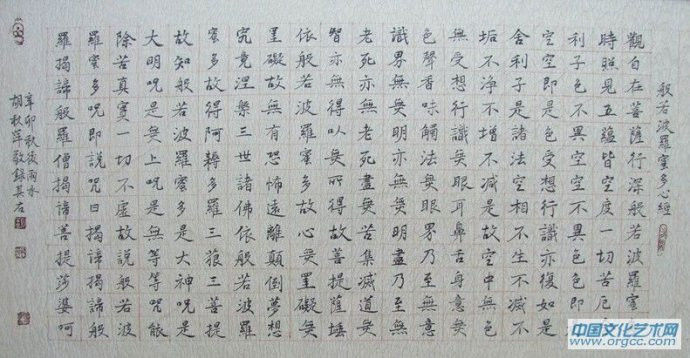 般若波羅蜜多心經
觀自在菩薩行深般若波羅蜜多
時照見五蘊皆空度一切苦厄舍
利子色不異空空不異色色即是
空空即是色受想行識亦復如是
舍利子是諸法空相不生不滅不
垢不淨不增不減是故空中無色
無受想行識無眼耳鼻舌身意無
色聲香味觸法無眼界乃至無意
識界無無明亦無無明盡乃至無
老死亦無老死盡無苦集滅道無
智亦無得以無所得故菩提薩埵
依般若波羅蜜多故心無罣礙無
罣礙故無有恐怖遠離顛倒夢想
究竟涅槃三世諸佛依般若波羅
蜜多故得阿耨多羅三藐三菩提
故知般若波羅蜜多是大神咒是
大明咒是無上咒是無等等咒能
除苦真實一切不虛故說般若波
羅蜜多咒即說咒曰揭諦揭諦般
羅揭諦般羅僧揭諦菩提莎婆呵
辛卯秋後雨水
胡秋萍敬錄其右
中国文化艺术网
www.orgcc.com